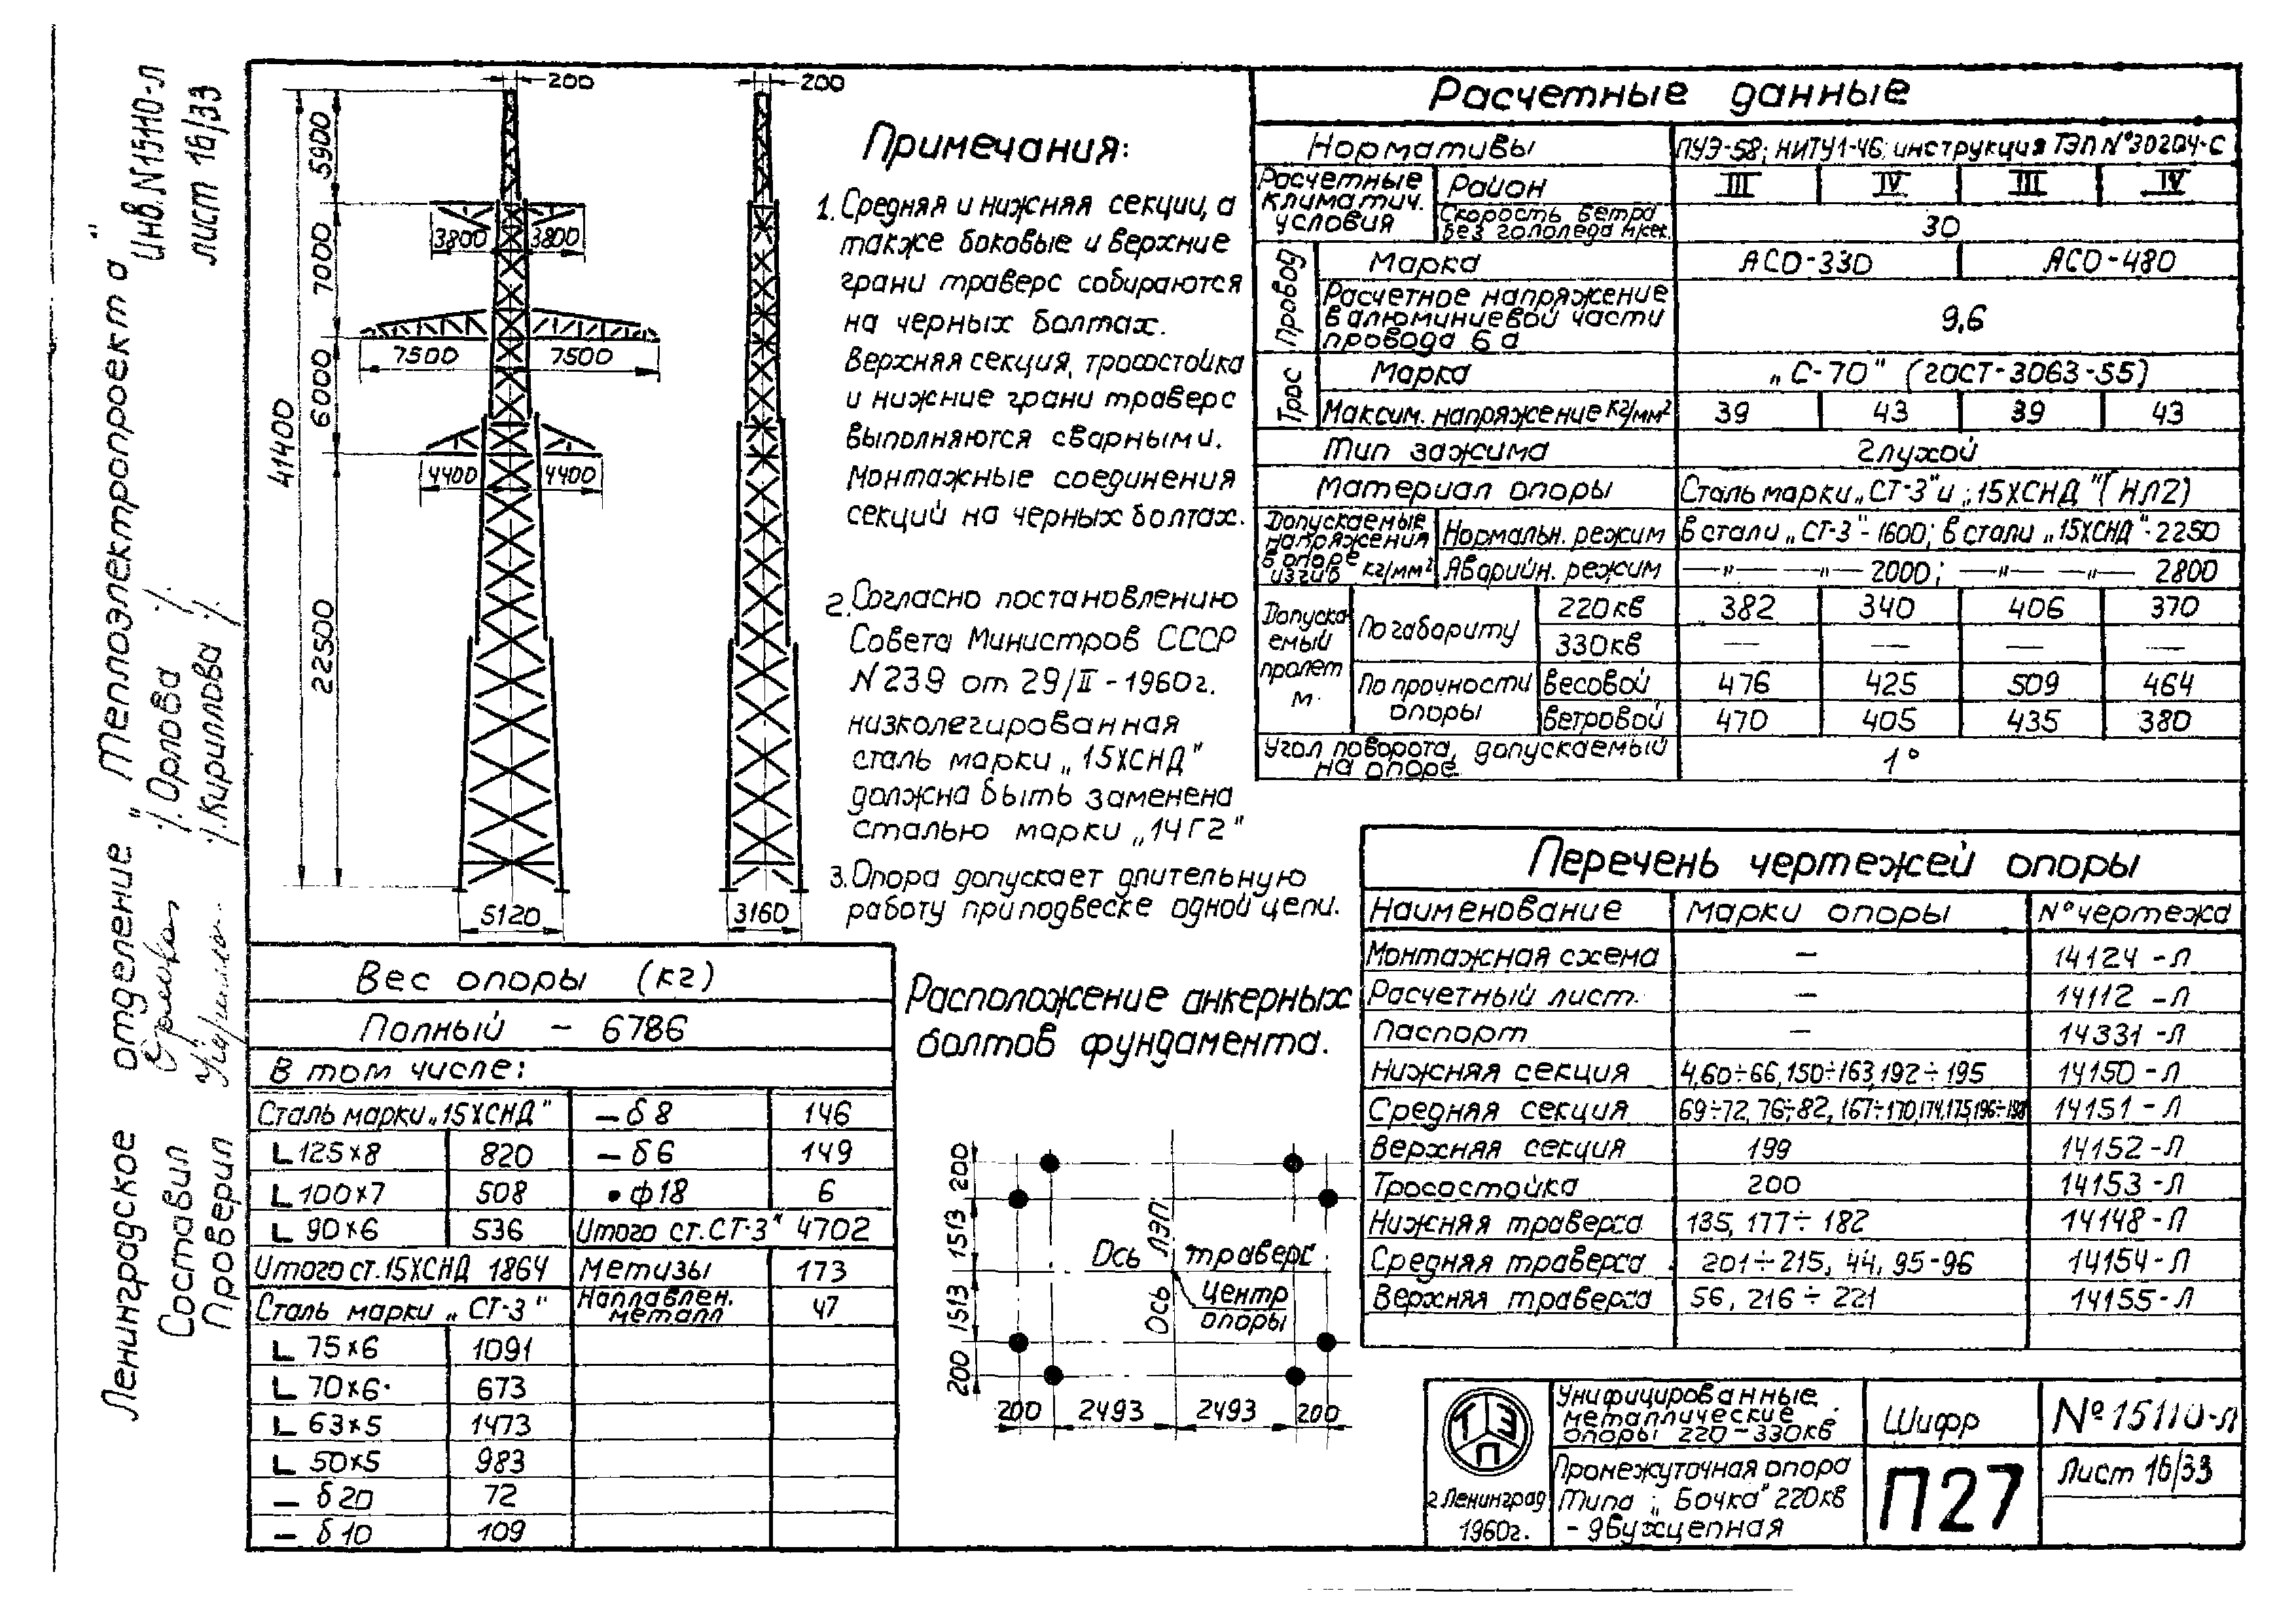 Инв.N15110-л
лист 16/33
Ленинградское отделение „Теплоэлектропроекта"
Составил /Орлова/
Проверил /Кириллова/
200
200
5900
7000
6000
22500
41400
3800 3800
7500 7500
4400 4400
5120
3160
Примечания:
1. Средняя и нижняя секции, а
также боковые и верхние
грани траверс собираются
на черных болтах.
Верхняя секция, тросостойка
и нижние грани траверс
выполняются сварными.
Монтажные соединения
секций на черных болтах.
2. Согласно постановлению
Совета Министров СССР
N239 от 29/II-1960г.
низколегированная
сталь марки „15ХСНД"
должна быть заменена
сталью марки „14Г2"
3. Опора допускает длительную
работу при подвеске одной цепи.
Расчетные данные
Нормативы ПУЭ-58; НИТУ1-46; инструкция ТЭП N°30204-С
Расчетные климатич. условия Район III IV III IV
Скорость ветра без гололеда м/сек. 30
Провод Марка АСО-330 АСО-480
Расчетное напряжение в алюминиевой части провода бa 9,6
Трос Марка „С-70" (ГОСТ-3063-55)
Максим. напряжение кг/мм² 39 43 39 43
Тип зажима Глухой
Материал опоры Сталь марки „СТ-3" и „15ХСНД" (НЛ2)
Допускаемые напряжения в опоре изгив кг/мм² Нормальн. режим в стали „СТ-3"-1600; в стали „15ХСНД"-2250
Аварийн. режим —"— —"— 2000; —"— —"— 2800
Допускаемый пролет м. По габариту 220кв 382 340 406 370
330кв — — — —
По прочности опоры весовой 476 425 509 464
ветровой 470 405 435 380
Угол поворота, допускаемый на опоре 1°
Вес опоры (кг)
Полный - 6786
В том числе:
Сталь марки „15ХСНД" — δ8 146
L 125×8 820 — δ6 149
L 100×7 508 • ф18 6
L 90×6 536 Итого ст. СТ-3" 4702
Итого ст. 15ХСНД 1864 Метизы 173
Сталь марки „СТ-3" Наплавлен. металл 47
L 75×6 1091
L 70×6 673
L 63×5 1473
L 50×5 983
— δ20 72
— δ10 109
Расположение анкерных
болтов фундамента.
200
1513
1513
200
Ось ЛЭП
Ось траверс
Центр
опоры
200 2493 2493 200
Перечень чертежей опоры
Наименование Марки опоры N° чертежа
Монтажная схема — 14124-Л
Расчетный лист. — 14112-Л
Паспорт — 14331-Л
Нижняя секция 4,60÷66,150÷163,192÷195 14150-Л
Средняя секция 69÷72, 76÷82, 167÷170,174,175,196÷198 14151-Л
Верхняя секция 199 14152-Л
Тросостойка 200 14153-Л
Нижняя траверса 135, 177÷182 14148-Л
Средняя траверса 201÷215, 44, 95-96 14154-Л
Верхняя траверса 56, 216÷221 14155-Л
ТЭП
г.Ленинград
1960г.
Унифицированные
металлические
опоры 220-330кв
Промежуточная опора
типа „Бочка" 220кв
- двухцепная
Шифр
П27
N°15110-л
Лист 16/33